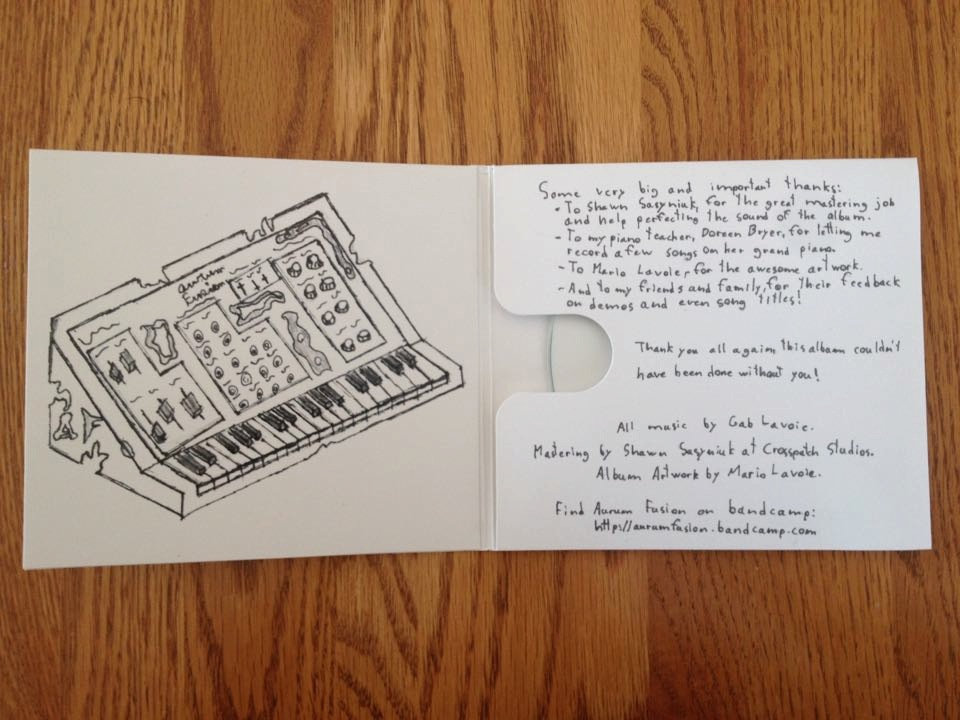 Aurum
Fusion
Some very big and important thanks:
- To Shawn Sasyniuk, for the great mastering job
and help perfecting the sound of the album.
- To my piano teacher, Doreen Bryer, for letting me
record a few songs on her grand piano.
- To Mario Lavoie, for the awesome artwork.
- And to my friends and family, for their feedback
on demos and even song titles!
Thank you all again, this album couldn't
have been done without you!
All music by Gab Lavoie.
Mastering by Shawn Sasyniuk at Crosspatch Studios.
Album Artwork by Mario Lavoie.
Find Aurum Fusion on bandcamp:
http://aurumfusion.bandcamp.com